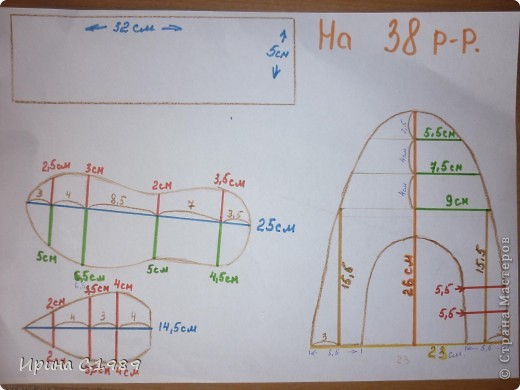 32 см
5см
На 38 р-р.
2,5см 3см 2см 3,5см
3 4 8,5 7 3,5
25см
5см 6,5см 5см 4,5см
2см 3,5см 4см
4 3 4
14,5см
2см 3,5см 4см
2,5
5,5см
4см
7,5см
4см
9см
15,5 26см 15,5
5,5
5,5
3
5,5
23
23 см
5,5
Ирина С1989
© Страна Мастеров